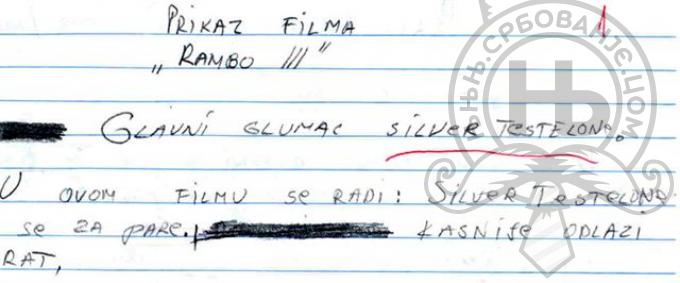 PRIKAZ FILMA
1
„RAMBO III"
GLAVNI GLUMAC SILVER TESTELONE.
U OVOM FILMU SE RADI: SILVER TESTELONE
SE ZA PARE. KASNIJE ODLAZI
RAT,
њњњ.СРБОВАЉЕ.ЦОМ